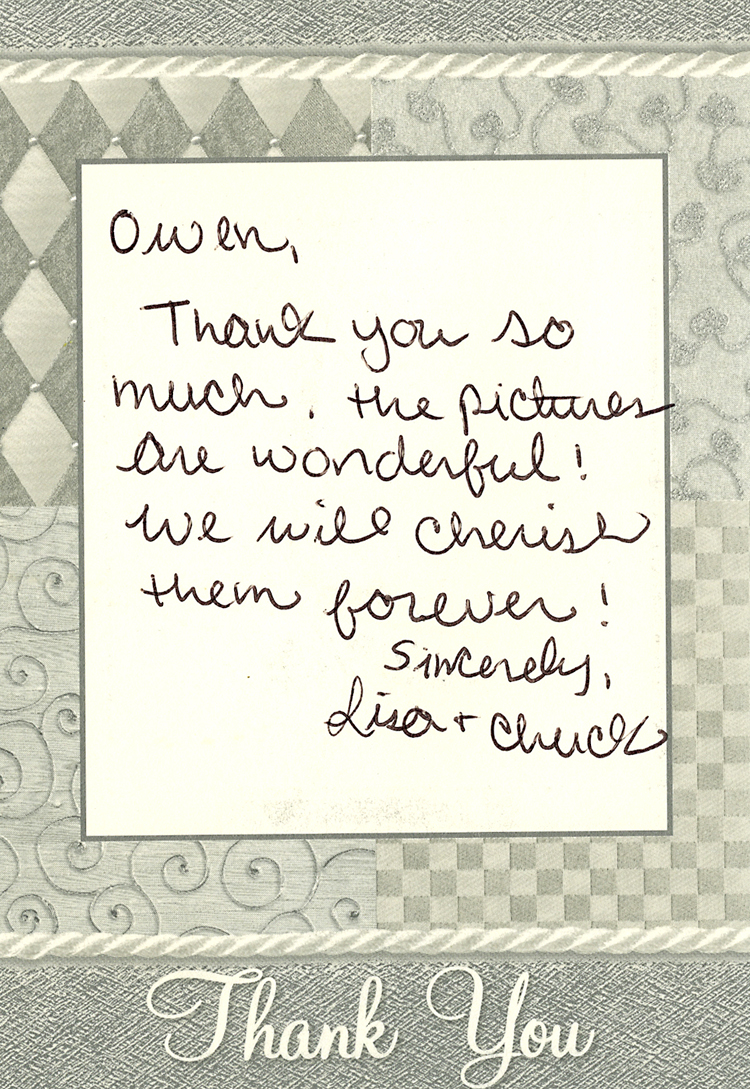 Owen,
Thank you so
much. the pictures
are wonderful!
We will cherish
them forever!
Sincerely,
Lisa + Chuck
Thank You